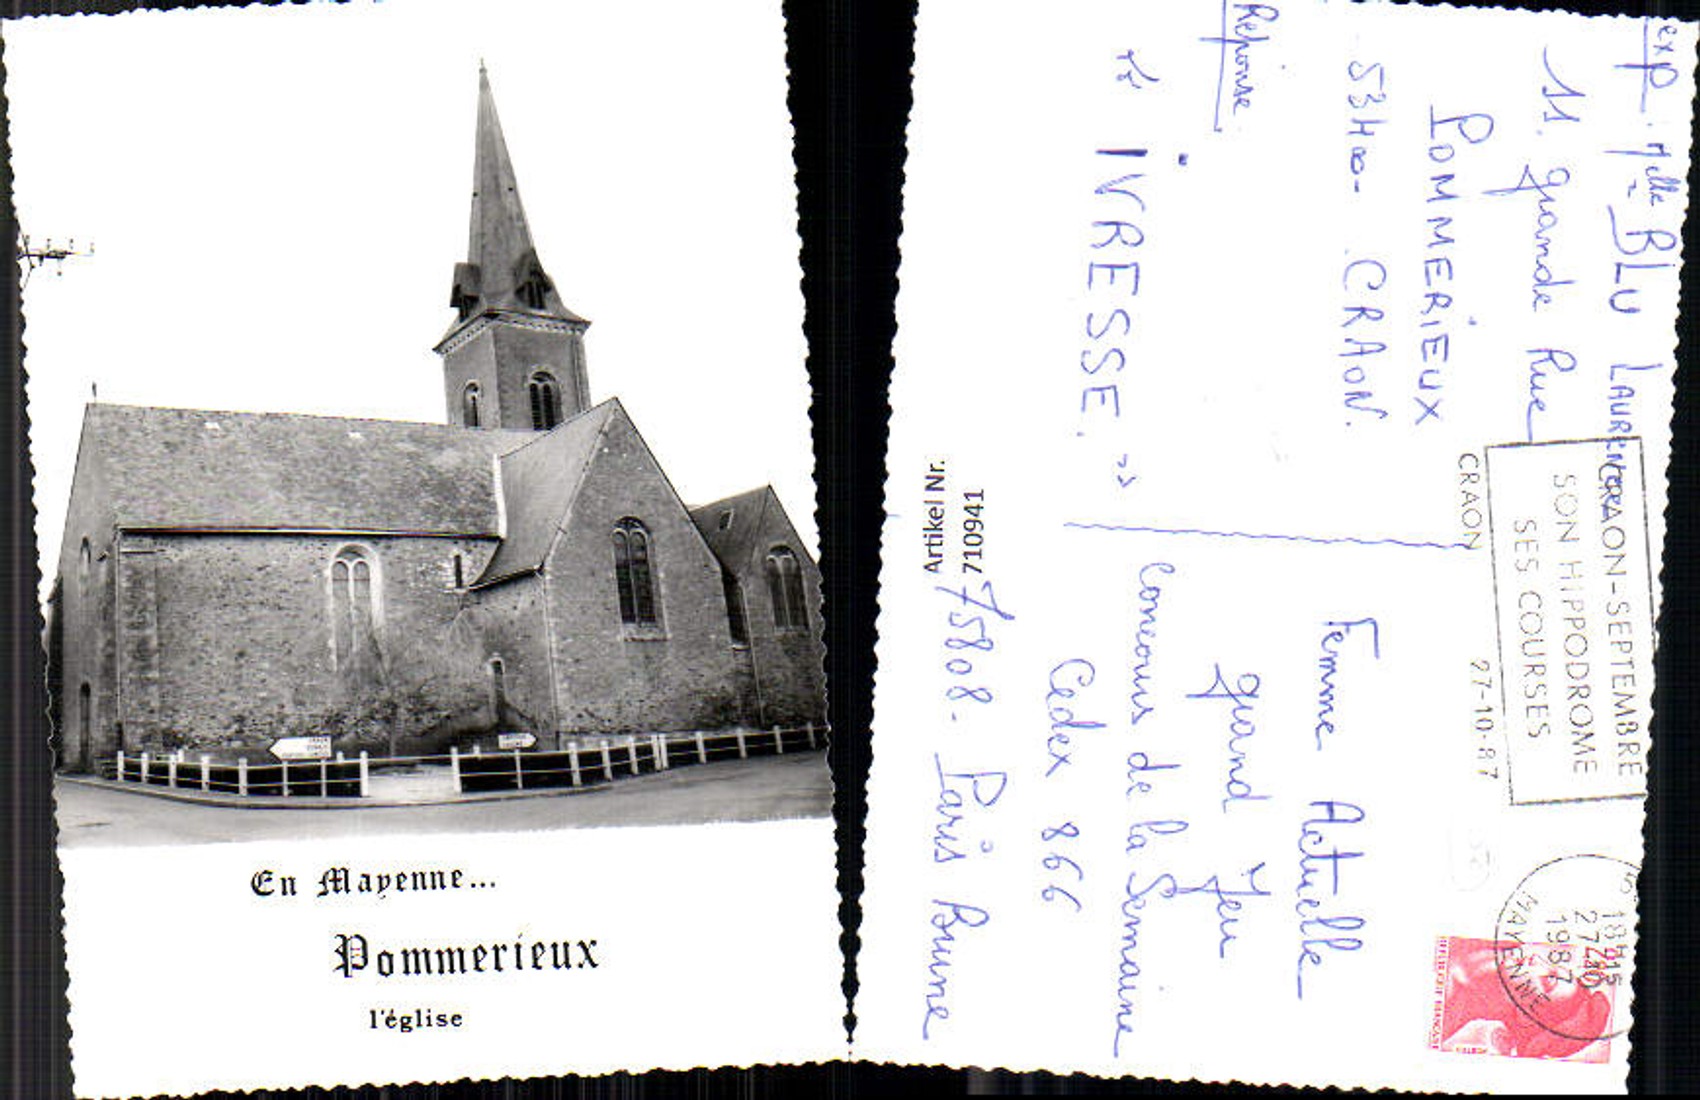 En Mayenne...
Pommerieux
l'église
exp : Melle BLU LAURENCE
11 grande Rue
POMMERIEUX
53400 - CRAON.
Réponse
" IVRESSE. "
CRAON-SEPTEMBRE
SON HIPPODROME
SES COURSES
CRAON 27-10-87
18H15
27-10
1987
MAYENNE
REPUBLIQUE FRANÇAISE
Femme Actuelle
grand Jeu
Concours de la Semaine
Cedex 866
75808 - Paris Brune
Artikel Nr.
710941